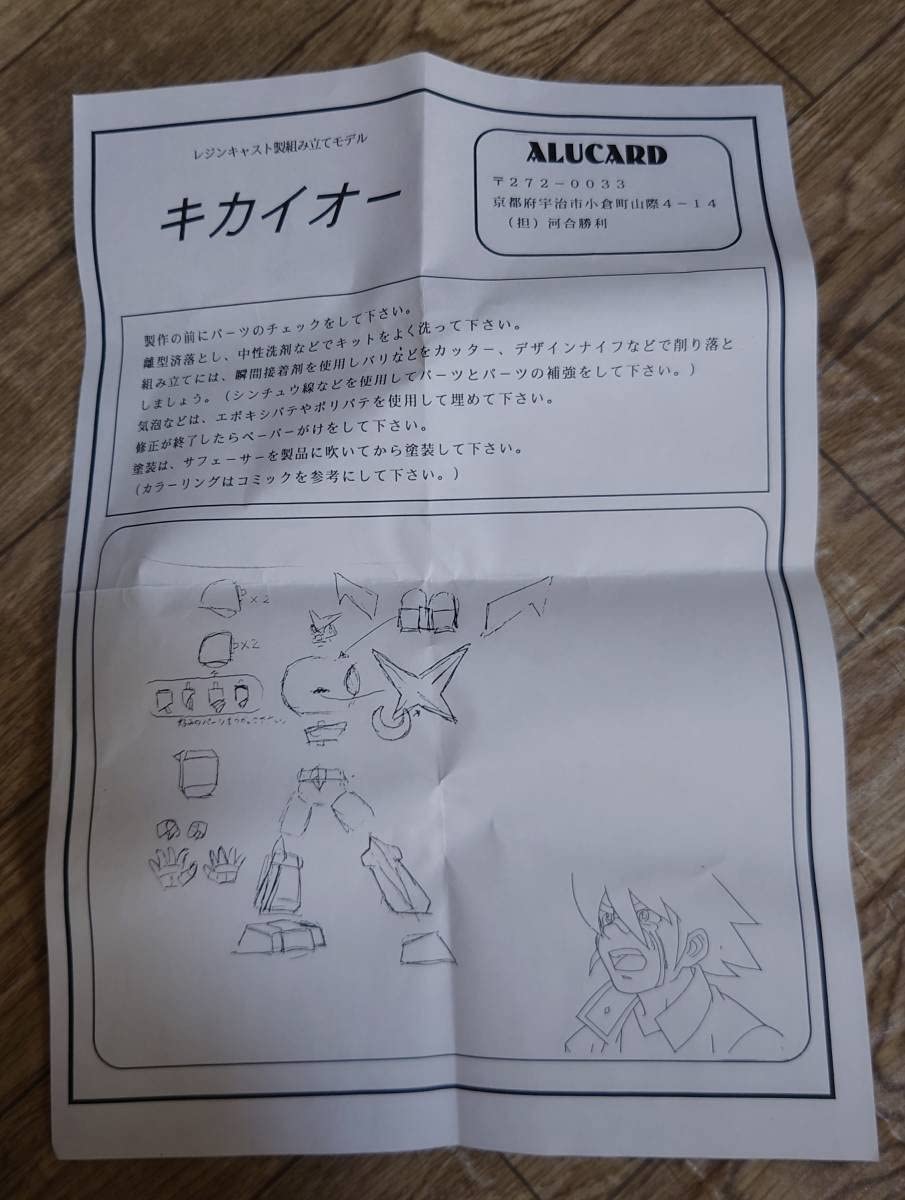 レジンキャスト製組み立てモデル
キカイオー
ALUCARD
〒272-0033
京都府宇治市小倉町山際4-14
(担)河合勝利
製作の前にパーツのチェックをして下さい。
離型済落とし、中性洗剤などでキットをよく洗って下さい。
組み立てには、瞬間接着剤を使用しバリなどをカッター、デザインナイフなどで削り落と
しましょう。(シンチュウ線などを使用してパーツとパーツの補強をして下さい。)
気泡などは、エポキシパテやポリパテを使用して埋めて下さい。
修正が終了したらペーパーがけをして下さい。
塗装は、サフェーサーを製品に吹いてから塗装して下さい。
(カラーリングはコミックを参考にして下さい。)
×2
×2